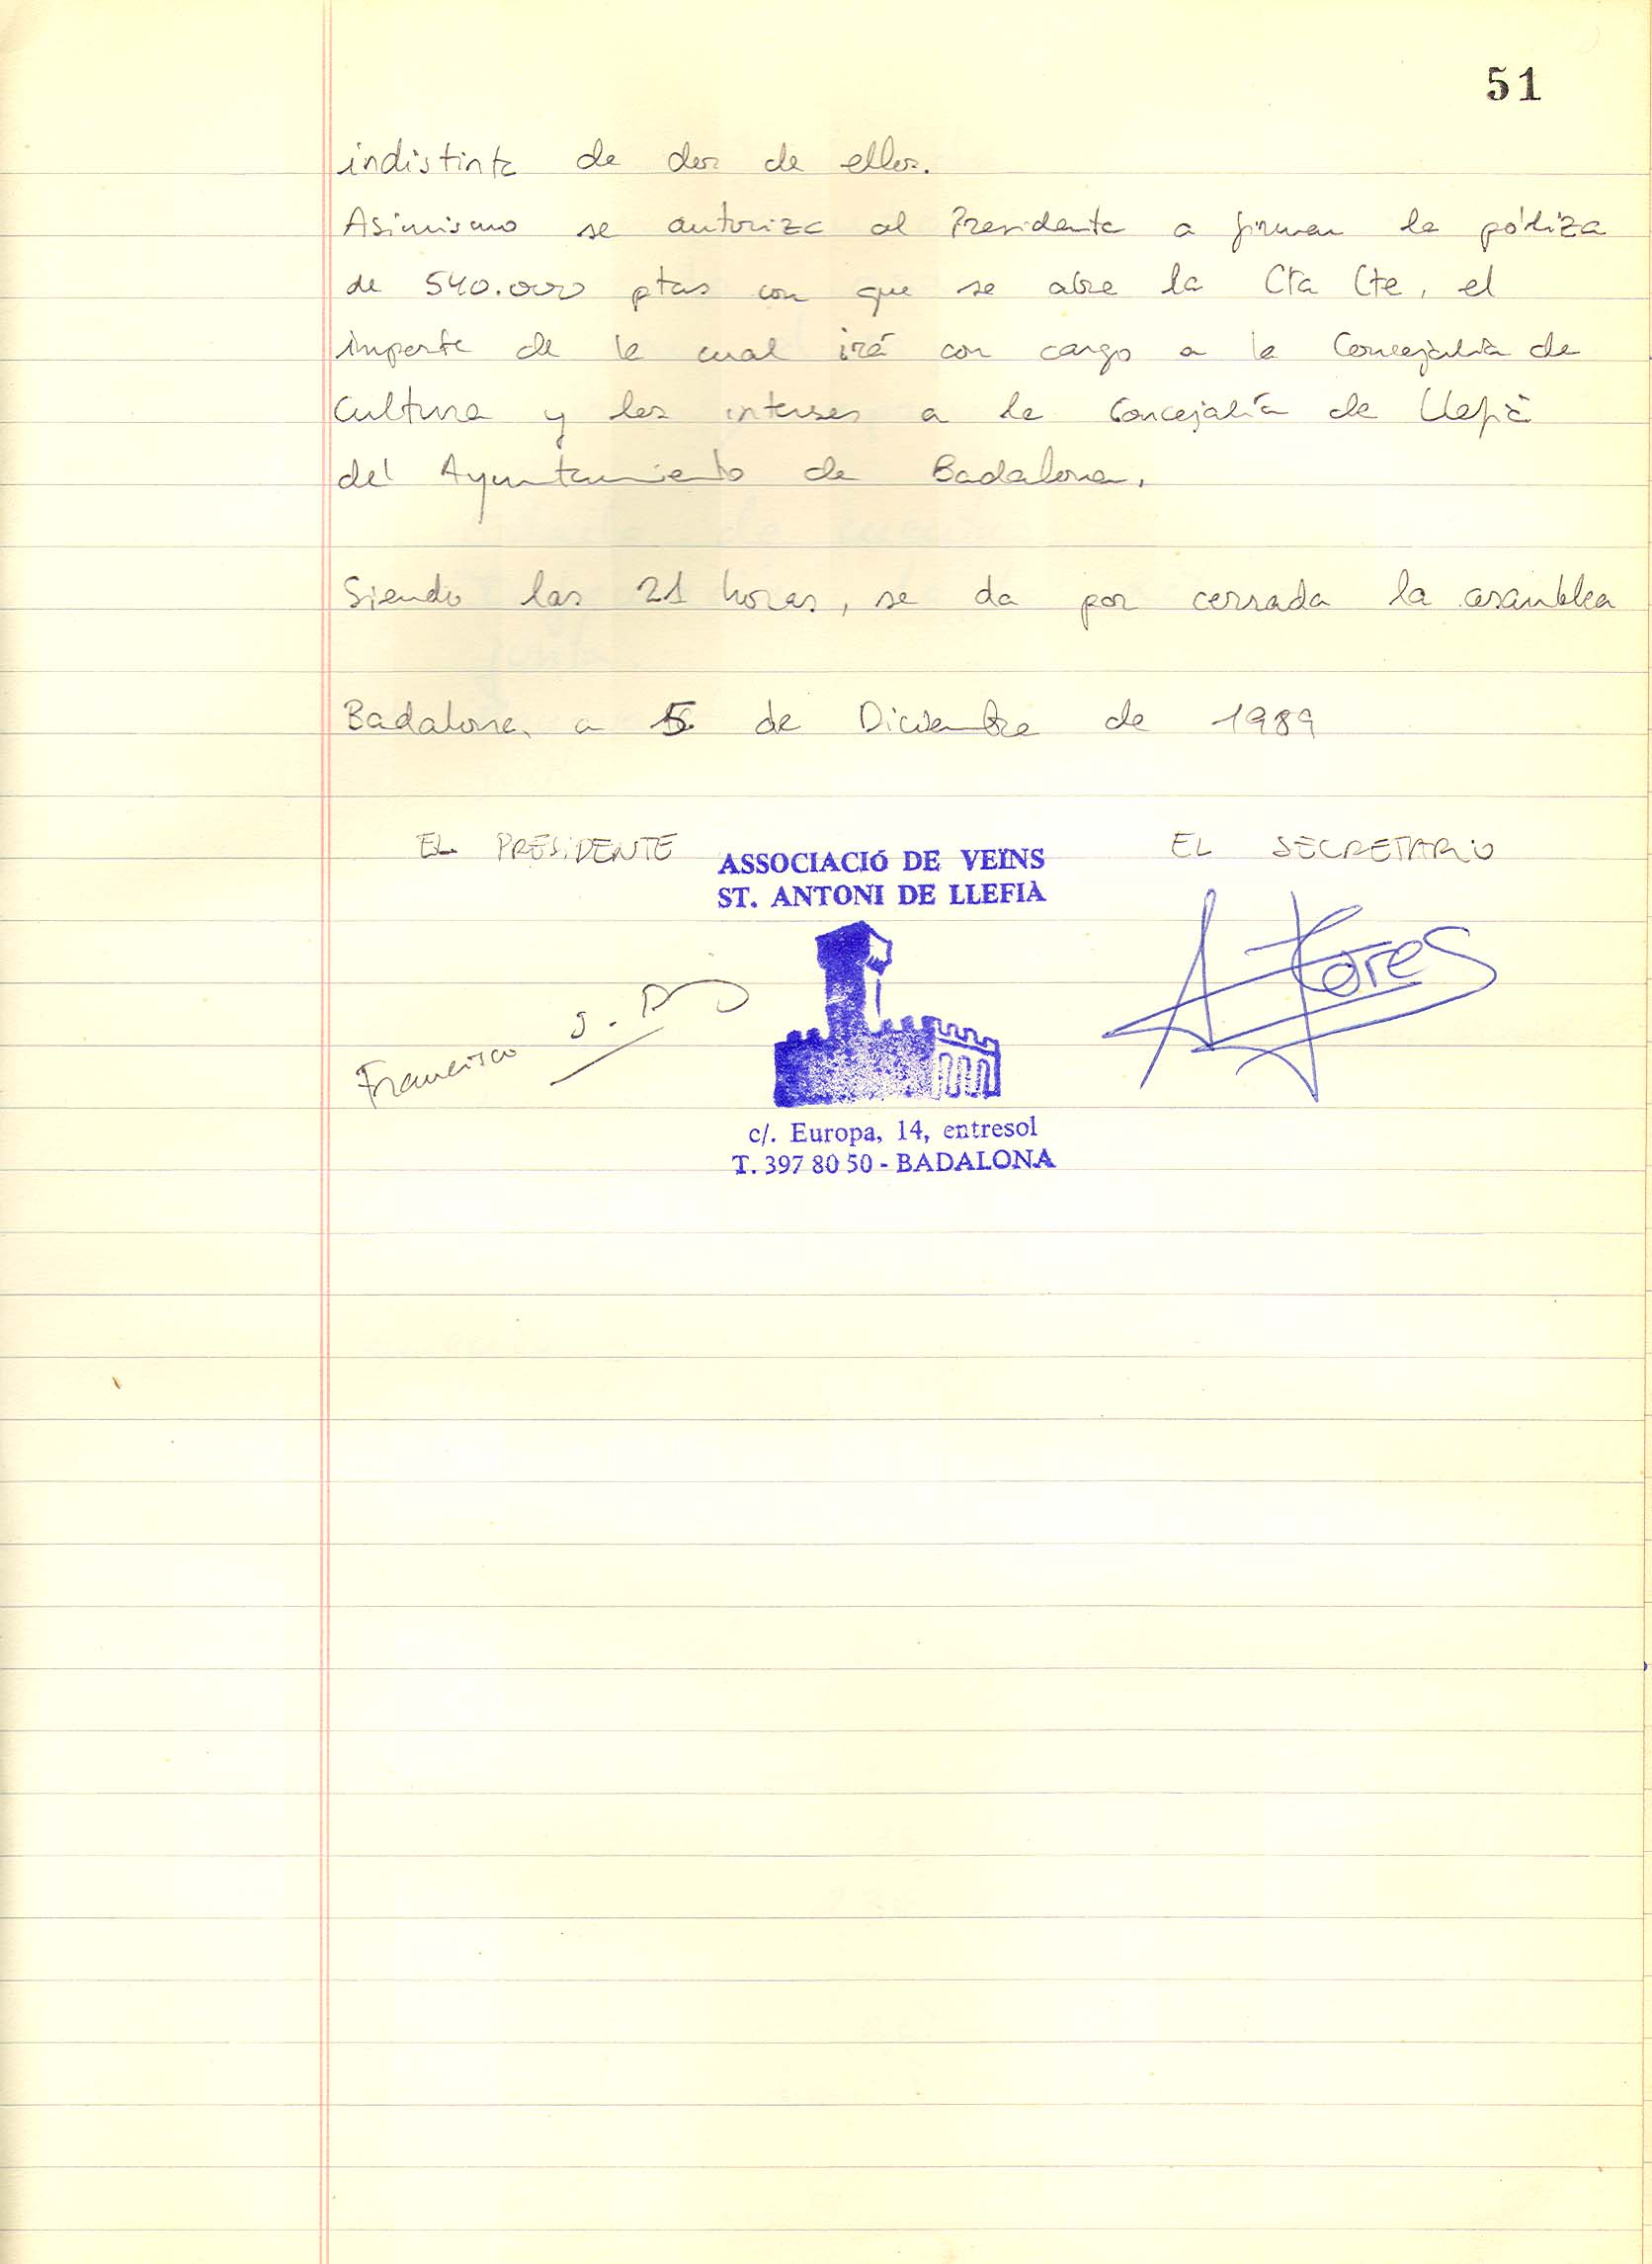 51
indistinta de dos de ellos.
Asimismo se autoriza al Presidente a firmar la póliza
de 540.000 ptas con que se abre la Cta Cte, el
importe de la cual irá con cargo a la Concejalía de
Cultura y los interses a la Concejalía de Llefià
del Ayuntamiento de Badalona.
Siendo las 21 horas, se da por cerrada la asamblea
Badalona, a 5 de Diciembre de 1989
EL PRESIDENTE
EL SECRETARIO
ASSOCIACIÓ DE VEÏNS
ST. ANTONI DE LLEFIÀ
Francisco
A Flores
c/. Europa, 14, entresol
T. 397 80 50 - BADALONA